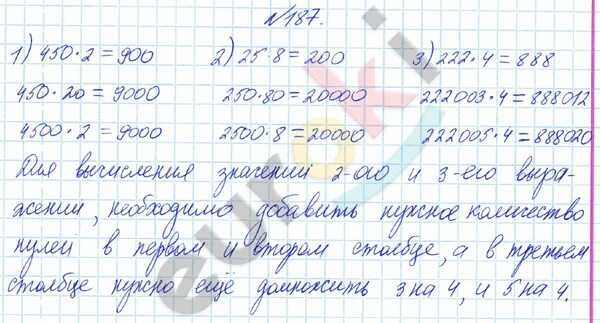 №187.
1) 450·2=900 2) 25·8=200 3) 222·4=888
450·20=9000 250·80=20000 222003·4=888012
4500·2=9000 2500·8=20000 222005·4=888020
Для вычисления значений 2-ого и 3-его выра-
жений, необходимо добавить нужное количество
нулей в первом и втором столбце, а в третьем
столбце нужно ещё домножить 3 на 4, и 5 на 4.
euroki